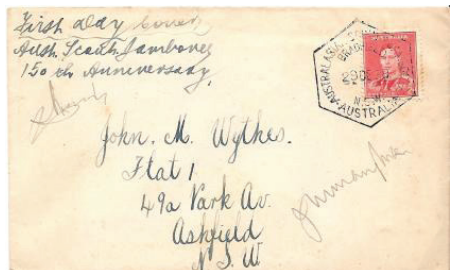 First Day Cover
Aust. Scout Jamboree
150th Anniversary
AUSTRALASIAN
BRADFIELD
29 DE
N.S.W.
AUSTRALIA
AUSTRALIA
John. M. Wythes.
Flat 1
49a Park Av.
Ashfield
N S W